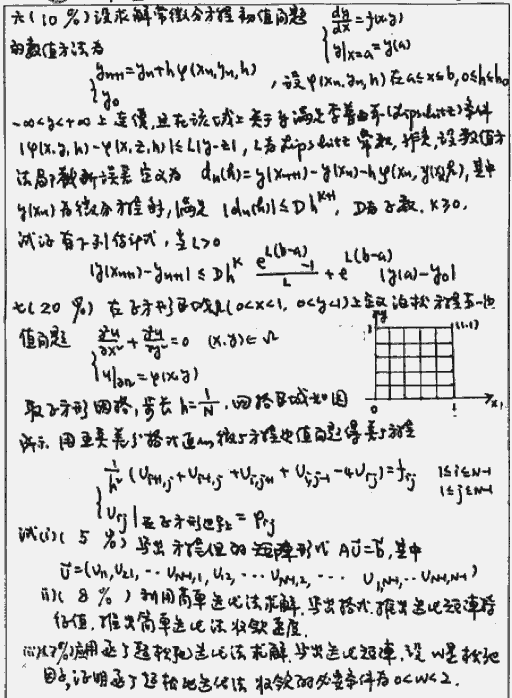 六(10%)设求解常微分方程初值问题 { dy/dx = f(x,y) y|x=a = y(a)
的数值方法为
{ yn+1 = yn + hφ(xn, yn, h) y0 , 设φ(xn, yn, h)在a≤x≤b, 0≤h≤h0
-∞<y<+∞上连续,且在该域上关于y满足李普希兹(Lipshitz)条件
|φ(x,y,h)-φ(x,z,h)|≤L|y-z|, L为Lipshitz常数, 设数值方
法局部截断误差定义为 dn(h)=y(xn+1)-y(xn)-hφ(xn,y(xn),h), 其中
y(xn)为微分方程的解,满足 |dn(h)|≤Dh^{k+1}, D为常数, k≥0.
试证有下列估计式, 当L>0
|y(xn+1)-yn+1| ≤ Dh^k (e^{L(b-a)}-1)/L + e^{L(b-a)} |y(a)-y0|
七(20%) 在正方形区域Ω(0<x<1, 0<y<1)上定义泊松方程第一边
值问题 { ∂²u/∂x² + ∂²u/∂y² = 0 (x,y)∈Ω u|∂Ω = φ(x,y)
y (1,1) 0 1 x
取正方形网格,步长h=1/N,网格区域如图
所示. 用五点差分格式逼近微分方程边值问题得差分方程
{ 1/h² (Ui+1,j + Ui-1,j + Ui,j+1 + Ui,j-1 - 4Uij) = fij 1≤i≤N-1 1≤j≤N-1
Uij|在正方形边界上 = φij
试(i)(5%)写出方程组的矩阵形式 AU=b, 其中
U=(U11, U21, … UN-1,1, U12, … UN-1,2, … U1,N-1, … UN-1,N-1)
ii)(8%)利用简单迭代法求解. 写出格式. 推出迭代矩阵特
征值. 推出简单迭代法收敛速度.
iii)(7%)应用逐次超松弛迭代法求解. 写出迭代矩阵. 设w是松弛
因子, 证明逐次超松弛迭代法收敛的必要条件为0<w<2.